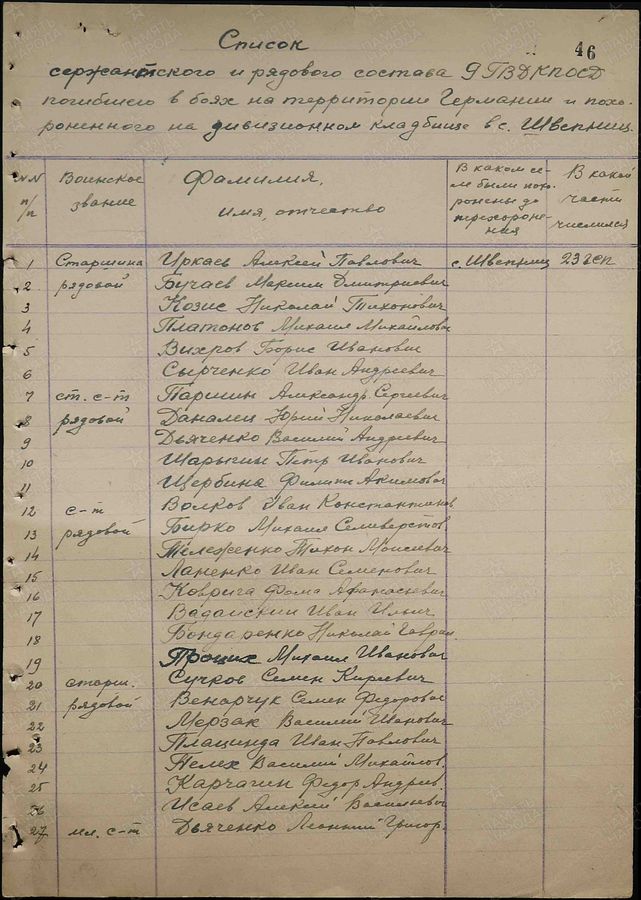 46
Список
сержантского и рядового состава 9 ГВДКПОСД
погибшего в боях на территории Германии и похо-
роненного на дивизионном кладбище в с. Швепниц.
NN п/п
Воинское звание
Фамилия, имя, отчество
В каком се-
ле были пох-
оронены до
перехороне-
ния
В какой
части
числился
1 Старшина Уркаев Алексей Павлович с. Швепниц 23 гсп
2 рядовой Бучаев Максим Дмитриевич
3 Козис Николай Тихонович
4 Платонов Михаил Михайлович
5 Вихров Борис Иванович
6 Сырченко Иван Андреевич
7 ст. с-т Паршин Александр Сергеевич
8 рядовой Даналеи Юрий Николаевич
9 Дьяченко Василий Андреевич
10 Шарыгин Петр Иванович
11 Щербина Филипп Акимович
12 с-т Волков Иван Константинов
13 рядовой Бирко Михаил Селиверстов
14 Тележенко Тихон Моисеевич
15 Ланенко Иван Семенович
16 Коврига Фома Афанасьевич
17 Вадаискии Иван Ильич
18 Бондаренко Николай Гаврил.
19 Процих Михаил Иванович
20 старш. Сучков Семен Киреевич
21 рядовой Венарчук Семен Федорович
22 Мерзак Василий Иванович
23 Плацинда Иван Павлович
24 Пелех Василий Михайлов.
25 Карчагин Федор Андреев.
26 Исаев Алексей Васильевич
27 мл. с-т Дьяченко Леонтий Григор.